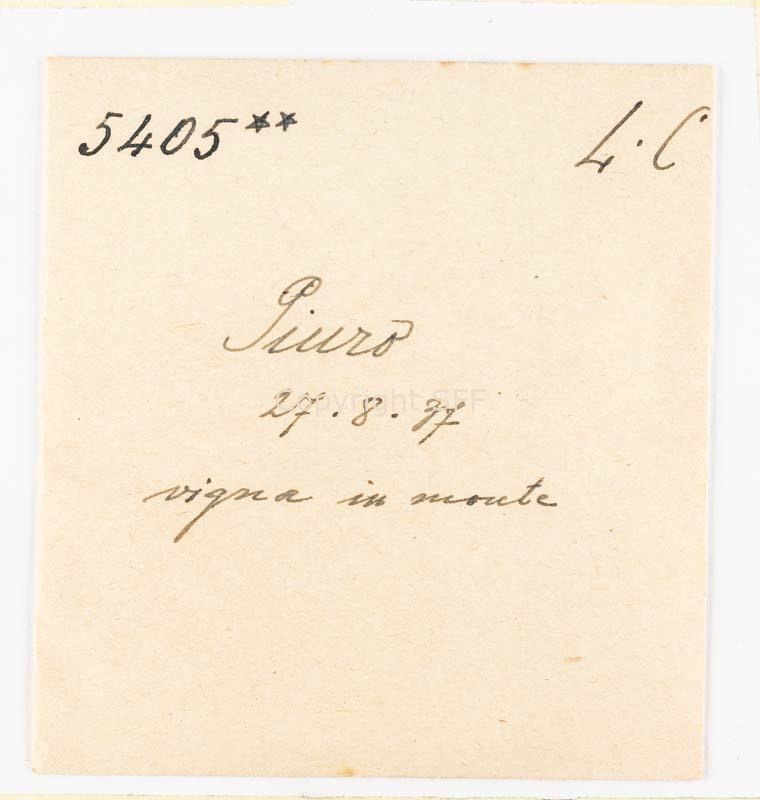 5405** L. C.
Piuro
27.8.37
Copyright SFF
vigna in monte